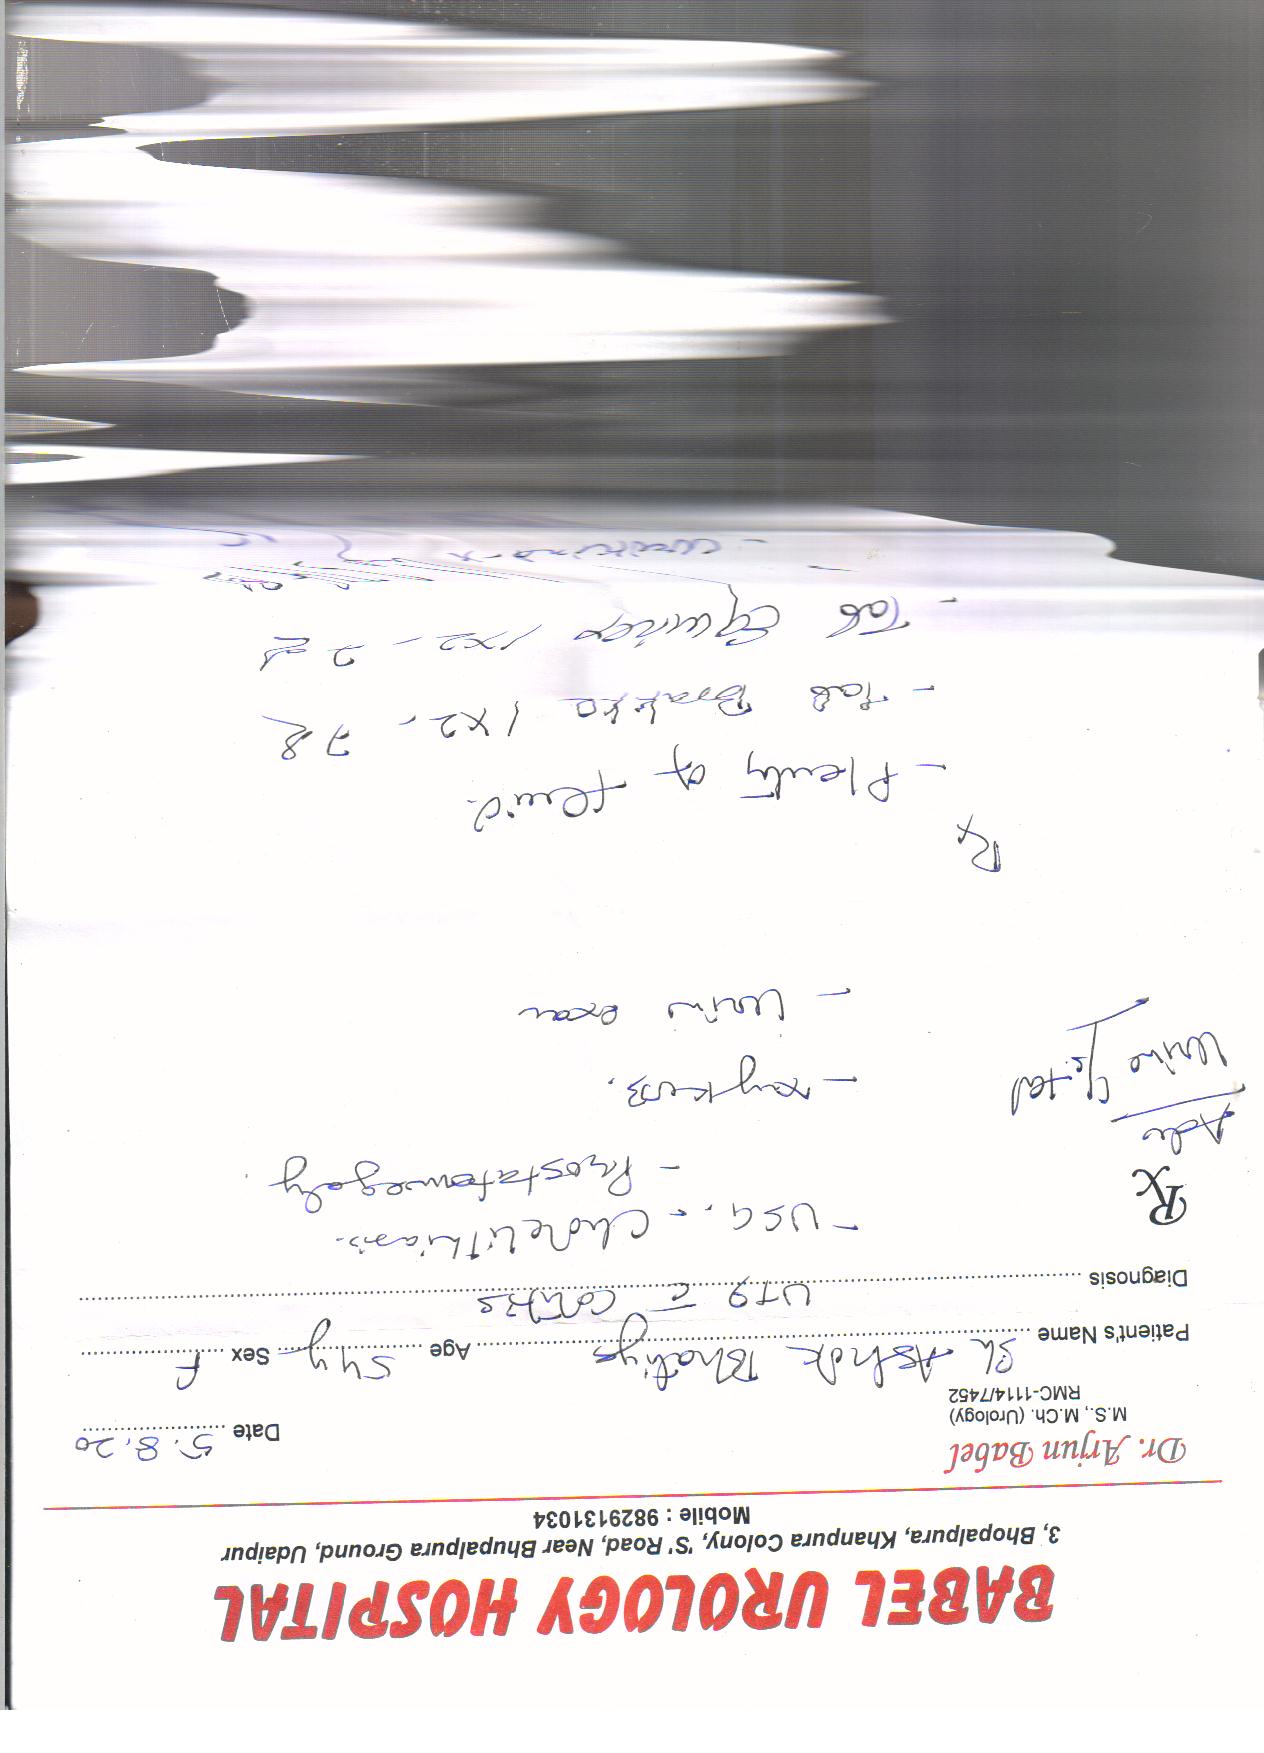 BABEL UROLOGY HOSPITAL
3, Bhopalpura, Khanpura Colony, 'S' Road, Near Bhupalpura Ground, Udaipur
Mobile : 9829131034
Dr. Arjun Babel
M.S., M.Ch. (Urology)
RMC-1114/7452
Date 5.8.20
Patient's Name Sh Ashok Bhatiya Age 54y Sex
Diagnosis
- USG. - Cholelithiasis.
- Prostatomegaly
Rx
Adv
Urine
- Xray KUB.
- Urine exam
Rx
- Plenty of fluid.
- Tab 1x2, 7
- Tab 1x2 - 7